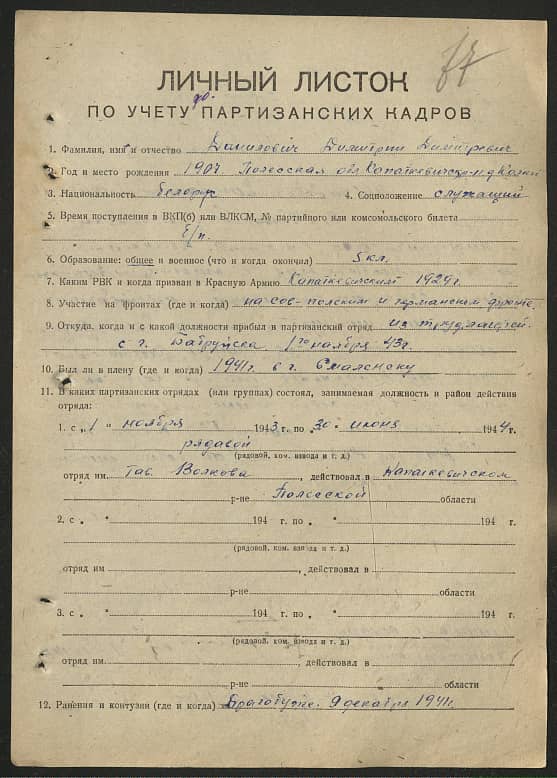 77
ЛИЧНЫЙ ЛИСТОК
ПО УЧЕТУ ПАРТИЗАНСКИХ КАДРОВ
1. Фамилия, имя и отчество Данилович Димитрий Димитревич
2. Год и место рождения 1907 Полесская обл Копаткевичского р-н д
3. Национальность белорус 4. Соцположение служащий
5. Время поступления в ВКП(б) или ВЛКСМ, № партийного или комсомольского билета
б/п.
6. Образование: общее и военное (что и когда окончил) 5 кл.
7. Каким РВК и когда призван в Красную Армию Копаткевичским 1929г.
8. Участие на фронтах (где и когда) на сов-полским и германским фронте.
9. Откуда, когда и с какой должности прибыл в партизанский отряд из труд.лагерей.
с г. Бабруйска 1го ноября 43г.
10. Был ли в плену (где и когда) 1941г. в г. Смаленску
11. В каких партизанских отрядах (или группах) состоял, занимаемая должность и район действия
отряда:
1. с „1" ноября 1943 г. по „30" июня 1944 г.
рядавой
(рядовой, ком. взвода и т. д.)
отряд им. Тав. Волкова, действовал в Капаткевичском
р-не Полесской области
2. с „ " 194 г. по „ " 194 г.
(рядовой, ком. взвода и т. д.)
отряд им , действовал в
р-не области
3. с „ " 194 г. по „ " 194 г.
(рядовой, ком. взвода и т. д.)
отряд им. , действовал в
р-не области
12. Ранения и контузии (где и когда) 9 декабря 1941г.